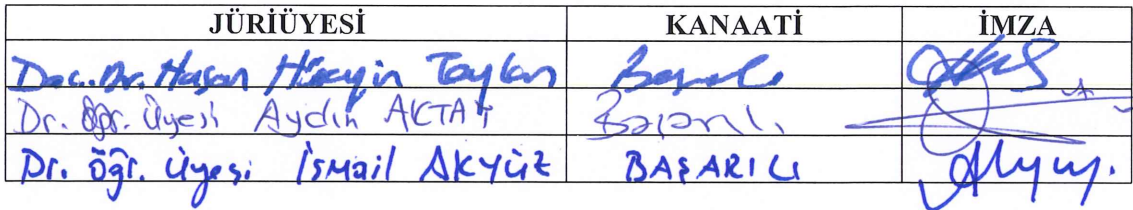 JÜRİÜYESİ KANAATİ İMZA
Doc. Dr. Hasan Hüseyin Taylan Başarılı
Dr. Öğr. Üyesi Aydın AKTAY Başarılı
Dr. öğr. üyesi İSMAİL AKYÜZ BAŞARILI